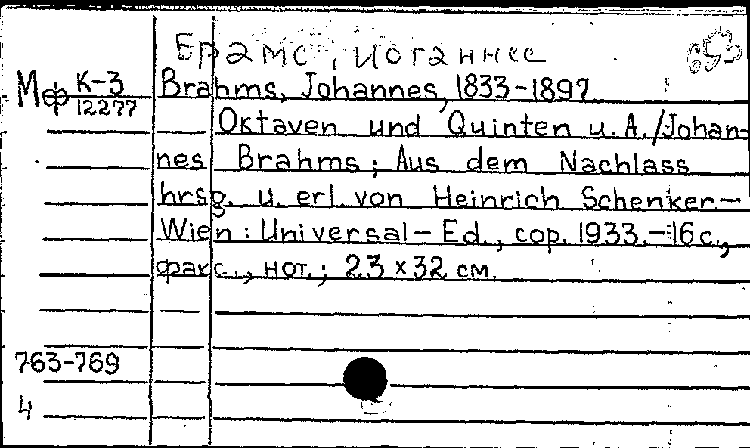 Брамс, Иоганнес
Мф К-3
12277
Brahms, Johannes, 1833-1897
Oktaven und Quinten u. A./Johan-
nes Brahms; Aus dem Nachlass
hrsg. u. erl. von Heinrich Schenker.-
Wien: Universal-Ed., cop. 1933.-16 с.,
факс., нот.; 23 x 32 см.
763-769
4